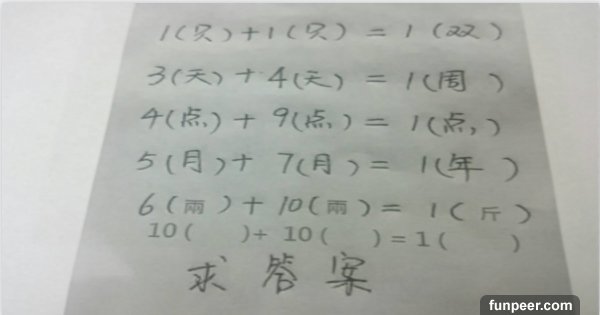 1(只)+1(只)=1(双)
3(天)+4(天)=1(周)
4(点)+9(点)=1(点)
5(月)+7(月)=1(年)
6(兩)+10(兩)=1(斤)
10( )+10( )=1( )
求答案
funpeer.com